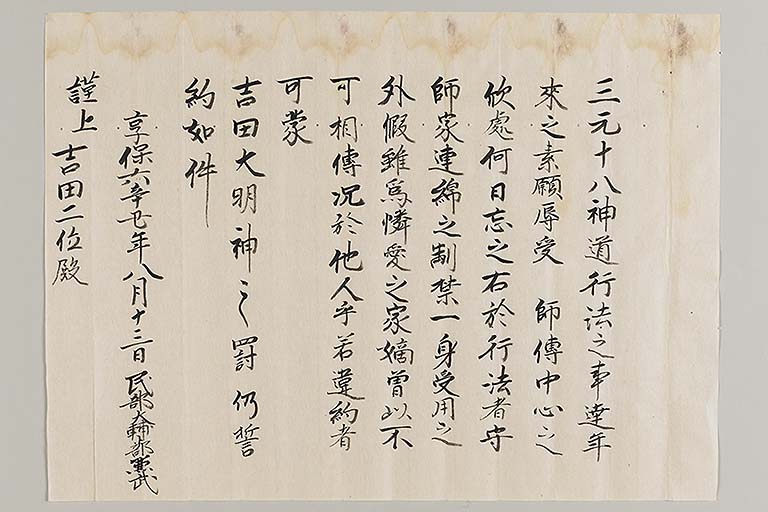 三元十八神道行法之事連年
來之素願辱受 師傳中心之
欣處何日忘之右於行法者守
師家連綿之制禁一身受用之
外假雖爲憐愛之家嫡曽以不
可相傳況於他人乎若違約者
可蒙
吉田大明神之罸仍誓
約如件
享保六辛丑年八月十三日 民部大輔
謹上 吉田二位殿